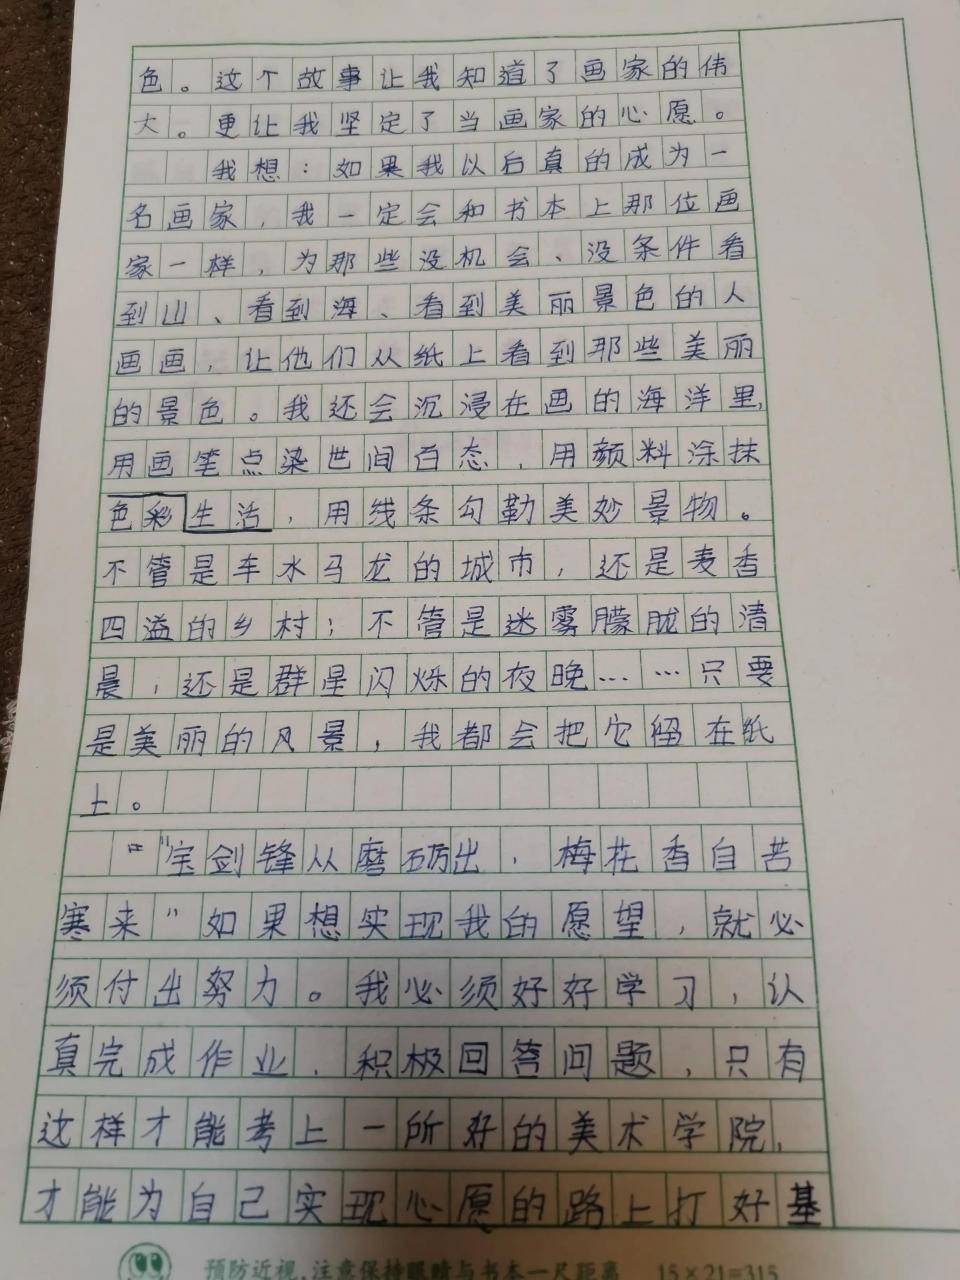 色。这个故事让我知道了画家的伟
大。更让我坚定了当画家的心愿。
我想：如果我以后真的成为一
名画家，我一定会和书本上那位画
家一样，为那些没机会、没条件看
到山、看到海、看到美丽景色的人
画画，让他们从纸上看到那些美丽
的景色。我还会沉浸在画的海洋里，
用画笔点染世间百态，用颜料涂抹
色彩生活，用线条勾勒美妙景物。
不管是车水马龙的城市，还是麦香
四溢的乡村；不管是迷雾朦胧的清
晨，还是群星闪烁的夜晚……只要
是美丽的风景，我都会把它留在纸
上。
“宝剑锋从磨砺出，梅花香自苦
寒来”如果想实现我的愿望，就必
须付出努力。我必须好好学习，认
真完成作业，积极回答问题，只有
这样才能考上一所好的美术学院，
才能为自己实现心愿的路上打好基
预防近视,注意保持眼睛与书本一尺距离 15×21=315